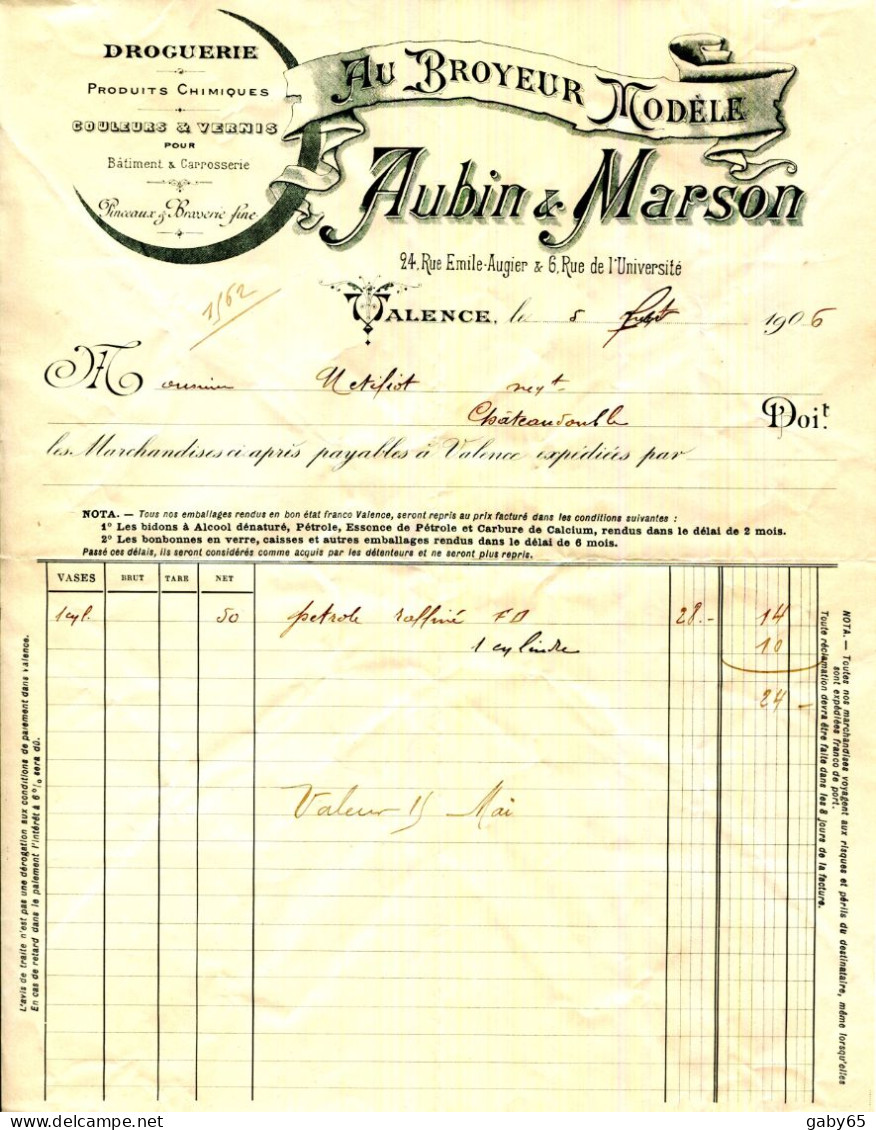 DROGUERIE
PRODUITS CHIMIQUES
COULEURS & VERNIS
POUR
Bâtiment & Carrosserie
Pinceaux & Brosserie fine
AU BROYEUR MODÈLE
Aubin & Marson
24, Rue Emile-Augier & 6, Rue de l'Université
1562
VALENCE, le 8 1906
Monsieur négt
Châteaudouble Doit
les Marchandises ci après payables à Valence expédiées par
NOTA. — Tous nos emballages rendus en bon état franco Valence, seront repris au prix facturé dans les conditions suivantes :
1º Les bidons à Alcool dénaturé, Pétrole, Essence de Pétrole et Carbure de Calcium, rendus dans le délai de 2 mois.
2º Les bonbonnes en verre, caisses et autres emballages rendus dans le délai de 6 mois.
Passé ces délais, ils seront considérés comme acquis par les détenteurs et ne seront plus repris.
VASES BRUT TARE NET
1 cyl. 50 pétrole raffiné FD 28.- 14
1 cylindre 10
24 -
Valeur 15 Mai
L'avis de traite n'est pas une dérogation aux conditions de paiement dans Valence.
En cas de retard dans le paiement l'intérêt à 6 % sera dû.
NOTA. — Toutes nos marchandises voyagent aux risques et périls du destinataire, même lorsqu'elles
sont expédiées franco de port.
Toute réclamation devra être faite dans les 8 jours de la facture.
gaby65